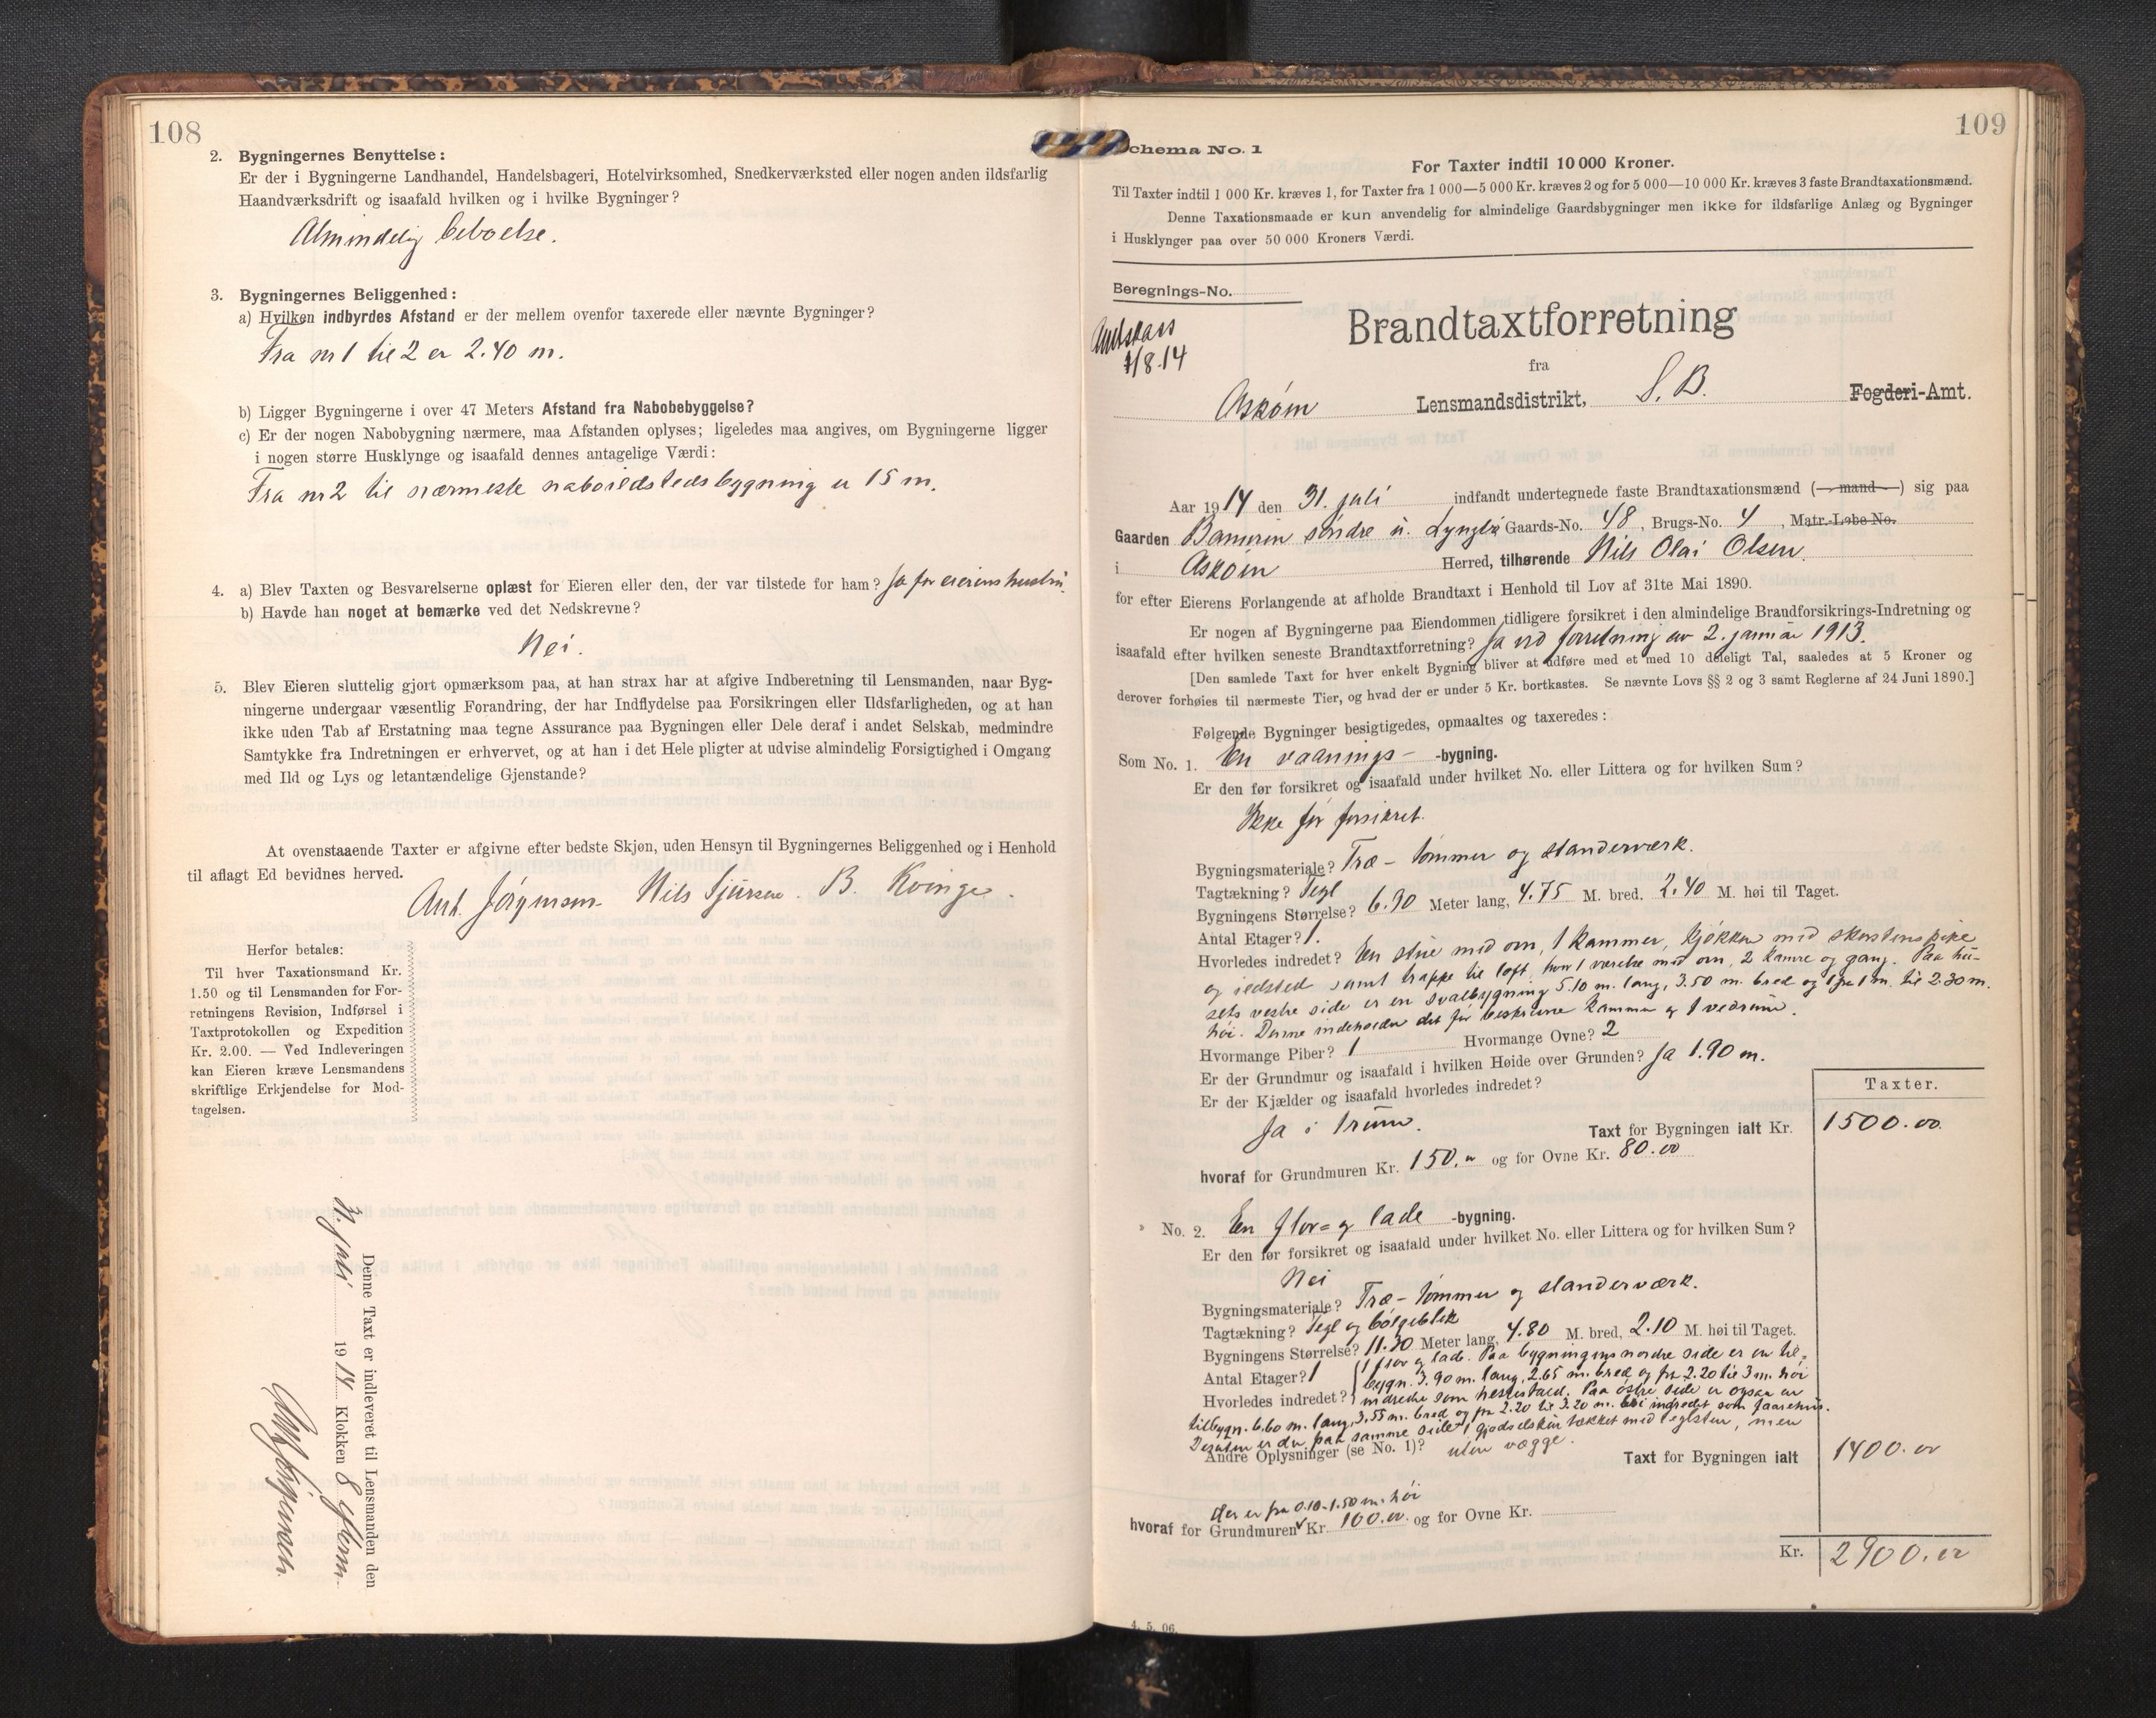 108
2. Bygningernes Benyttelse:
Er der i Bygningerne Landhandel, Handelsbageri, Hotelvirksomhed, Snedkerværksted eller nogen anden ildsfarlig
Haandværksdrift og isaafald hvilken og i hvilke Bygninger?
Almindelig beboelse.
3. Bygningernes Beliggenhed:
a) Hvilken indbyrdes Afstand er der mellem ovenfor taxerede eller nævnte Bygninger?
Fra nr 1 til 2 er 2.40 m.
b) Ligger Bygningerne i over 47 Meters Afstand fra Nabobebyggelse?
c) Er der nogen Nabobygning nærmere, maa Afstanden oplyses; ligeledes maa angives, om Bygningerne ligger
i nogen større Husklynge og isaafald dennes antagelige Værdi:
Fra nr 2 til nærmeste naboildstedsbygning er 15 m.
4. a) Blev Taxten og Besvarelserne oplæst for Eieren eller den, der var tilstede for ham? Ja for eierens hustru.
b) Havde han noget at bemærke ved det Nedskrevne?
Nei.
5. Blev Eieren sluttelig gjort opmærksom paa, at han strax har at afgive Indberetning til Lensmanden, naar Byg-
ningerne undergaar væsentlig Forandring, der har Indflydelse paa Forsikringen eller Ildsfarligheden, og at han
ikke uden Tab af Erstatning maa tegne Assurance paa Bygningen eller Dele deraf i andet Selskab, medmindre
Samtykke fra Indretningen er erhvervet, og at han i det Hele pligter at udvise almindelig Forsigtighed i Omgang
med Ild og Lys og letantændelige Gjenstande?
At ovenstaaende Taxter er afgivne efter bedste Skjøn, uden Hensyn til Bygningernes Beliggenhed og i Henhold
til aflagt Ed bevidnes herved.
Ant. Jørgensen Nils Sjursen. B. Kvinge.
Herfor betales:
Til hver Taxationsmand Kr.
1.50 og til Lensmanden for For-
retningens Revision, Indførsel i
Taxtprotokollen og Expedition
Kr. 2.00. — Ved Indleveringen
kan Eieren kræve Lensmandens
skriftlige Erkjendelse for Mod-
tagelsen.
Denne Taxt er indleveret til Lensmanden den
31. juli 1914 Klokken 8 efterm.
109
Schema No. 1
For Taxter indtil 10 000 Kroner.
Til Taxter indtil 1 000 Kr. kræves 1, for Taxter fra 1 000—5 000 Kr. kræves 2 og for 5 000—10 000 Kr. kræves 3 faste Brandtaxationsmænd.
Denne Taxationsmaade er kun anvendelig for almindelige Gaardsbygninger men ikke for ildsfarlige Anlæg og Bygninger
i Husklynger paa over 50 000 Kroners Værdi.
Beregnings-No.
8.14
Brandtaxtforretning
fra
Askøen Lensmandsdistrikt, S. B. Fogderi-Amt.
Aar 1914 den 31. juli indfandt undertegnede faste Brandtaxationsmænd (—mand—) sig paa
Gaarden søndre Gaards-No. 48, Brugs-No. 4, Matr.-Løbe-No.
i Askøen Herred, tilhørende Nils Olai Olsen
for efter Eierens Forlangende at afholde Brandtaxt i Henhold til Lov af 31te Mai 1890.
Er nogen af Bygningerne paa Eiendommen tidligere forsikret i den almindelige Brandforsikrings-Indretning og
isaafald efter hvilken seneste Brandtaxtforretning? Ja ved forretning av 2. januar 1913.
[Den samlede Taxt for hver enkelt Bygning bliver at udføre med et med 10 deleligt Tal, saaledes at 5 Kroner og
derover forhøies til nærmeste Tier, og hvad der er under 5 Kr. bortkastes. Se nævnte Lovs §§ 2 og 3 samt Reglerne af 24 Juni 1890.]
Følgende Bygninger besigtigedes, opmaaltes og taxeredes:
Som No. 1. En vaanings- -bygning.
Er den før forsikret og isaafald under hvilket No. eller Littera og for hvilken Sum?
Ikke før forsikret.
Bygningsmateriale? Træ – tømmer og standerværk.
Tagtækning? Tegl
Bygningens Størrelse? 6.90 Meter lang, 4.75 M. bred, 2.40 M. høi til Taget.
Antal Etager? 1.
Hvorledes indredet? En stue med ovn, 1 kammer, kjøkken med skorstenspibe
og ildsted samt trappe til loft, hvor 1 værelse med ovn, 2 kamre og gang. Paa hu-
sets vestre side er en svalbygning 5.10 m. lang, 3.50 m. bred og fra 1 m. til 2.30 m.
høi. Denne indeholder det før beskrevne kammer og 1 vedrum.
Hvormange Piber? 1 Hvormange Ovne? 2
Er der Grundmur og isaafald i hvilken Høide over Grunden? Ja 1.90 m.
Er der Kjælder og isaafald hvorledes indredet?
Ja i 1 rum.
Taxter.
Taxt for Bygningen ialt Kr. 1500.00
hvoraf for Grundmuren Kr. 150.00 og for Ovne Kr. 80.00
No. 2. En flor= og lade -bygning.
Er den før forsikret og isaafald under hvilket No. eller Littera og for hvilken Sum?
Nei
Bygningsmateriale? Træ – tømmer og standerværk.
Tagtækning? Tegl og bølgeblik
Bygningens Størrelse? 11.30 Meter lang, 4.80 M. bred, 2.10 M. høi til Taget.
Antal Etager? 1 1 flor og lade. Paa bygningens nordre side er en til-
Hvorledes indredet? bygn. 3.90 m. lang, 2.65 m. bred og fra 2.20 til 3 m. høi
indredet som hestestald. Paa østre side er ogsaa en
tilbygn. 6.60 m. lang, 3.55 m. bred og fra 2.20 til 3.20 m. høi indredet som faarehus.
Desuten er der paa samme side 1 gjødselskur tækket med teglsten, men
Andre Oplysninger (se No. 1)? uten vægge.
Taxt for Bygningen ialt 1400.00
der er fra 0.10–1.50 m. høi
hvoraf for Grundmuren Kr. 100.00 og for Ovne Kr.
Kr. 2900.00
4. 5. 06.